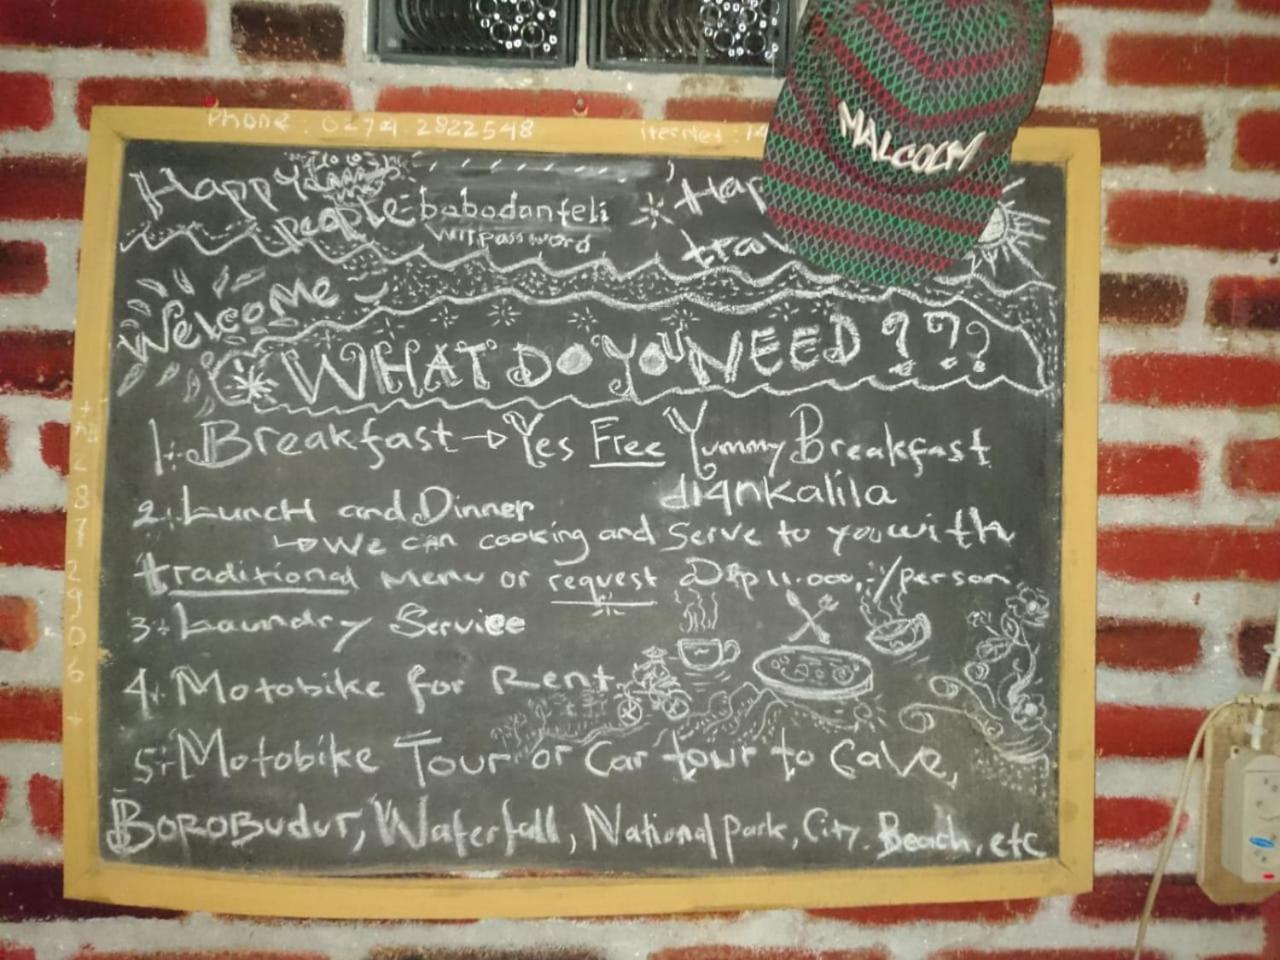 Phone : 0274.2822548
MALCOLM
Happy
people
babadanfeli
wifi password
Welcome
WHAT DO YOU NEED ???
1. Breakfast → Yes Free Yummy Breakfast
diankalila
2. Lunch and Dinner
↳ We can cooking and Serve to you with
traditional menu or request @ Rp 11.000,-/person
3. Laundry Service
4. Motobike for Rent
5. Motobike Tour or Car tour to Cave,
Borobudur, Waterfall, National park, City. Beach, etc